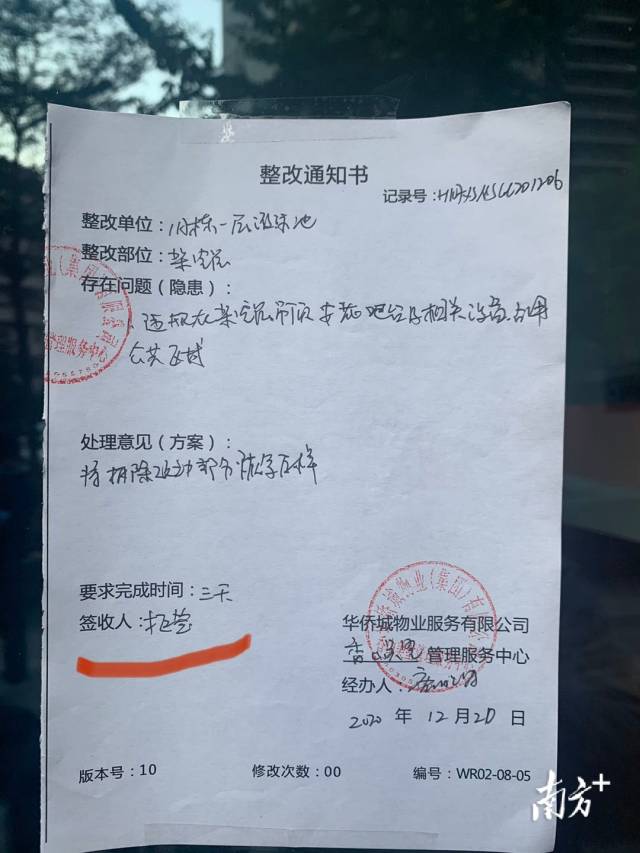 整改通知书
记录号：
整改单位：一层游泳池
整改部位：架空层
存在问题（隐患）：
违规在架空层前厅安装吧台及相关设备，占用
公共区域
处理意见（方案）：
将拆除改动部分恢复原样
要求完成时间：三天
签收人：拒签
华侨城物业服务有限公司
管理服务中心
经办人：
2020 年 12 月 20 日
版本号：10 修改次数：00 编号：WR02-08-05
南方+